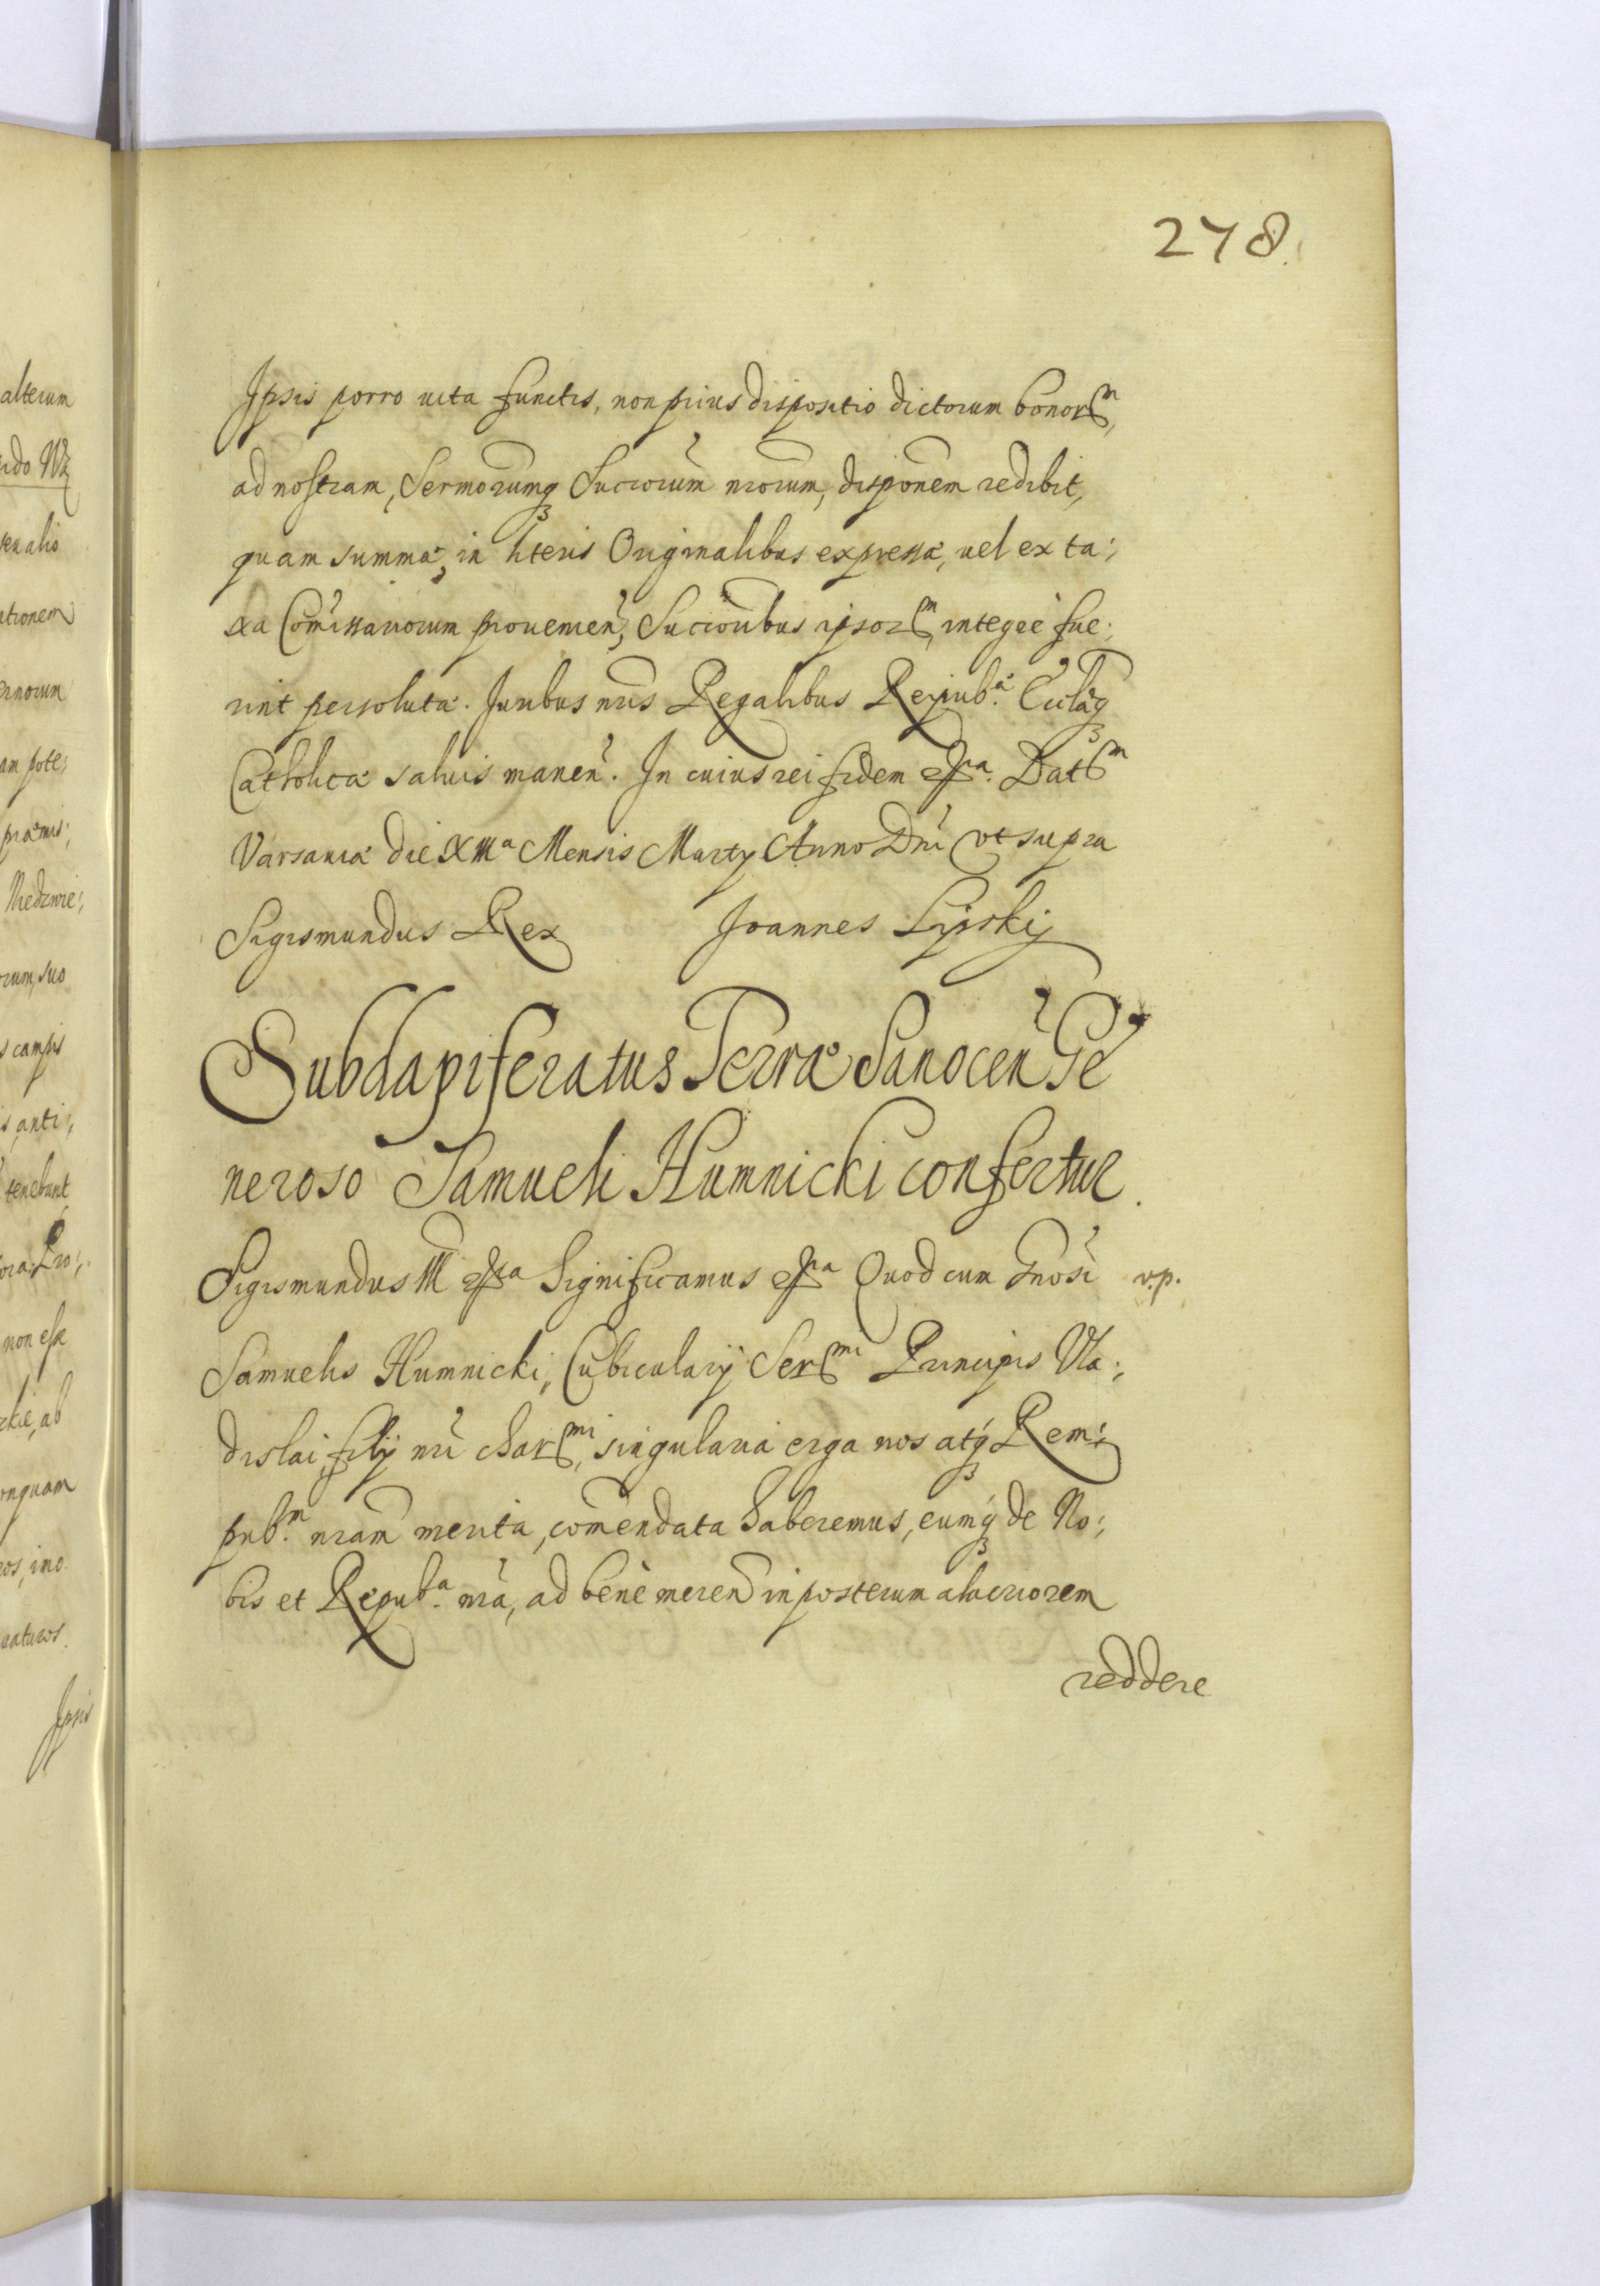 278.
Ipsis porro uita functis, non prius dispositio dictorum bonor͂m,
ad nostram, Sermorumq Succorum nrorum, disponem redibit,
quam summæ, in literis Originalibus expressæ, uel ex ta:
xa Com̃issariorum prouenien, Succoribus ipsorm, integrè fue:
rint persolutæ. Iuribus nris Regalibus Reipub.æ Ecclæq
Catholicæ saluis manen. In cuius rei fidem &ra. Datm
Varsauiæ die XIIIa Mensis Martij Anno Dni vt supra
Sigismundus Rex Joannes Lipskij
Subdapiferatus Terræ Sanocen Ge
neroso Samueli Humnicki confertur.
Sigismundus III &ra Significamus &ra Quod cum Gnosi v.p.
Samuelis Humnicki, Cubicularij Sermi Principis Vla:
dislai, filij nri charmi, singularia erga nos atq Rem:
pub.m nram merita, comendata haberemus, eumq de No:
bis et Repub.a nra, ad benè meren in posterum alacriorem
reddere
alterum
ationem
am pote:
præmis:
Niedzwie:
s campis
s anti:
tenebunt
non esse
kie, ab
nquam
Ipsis